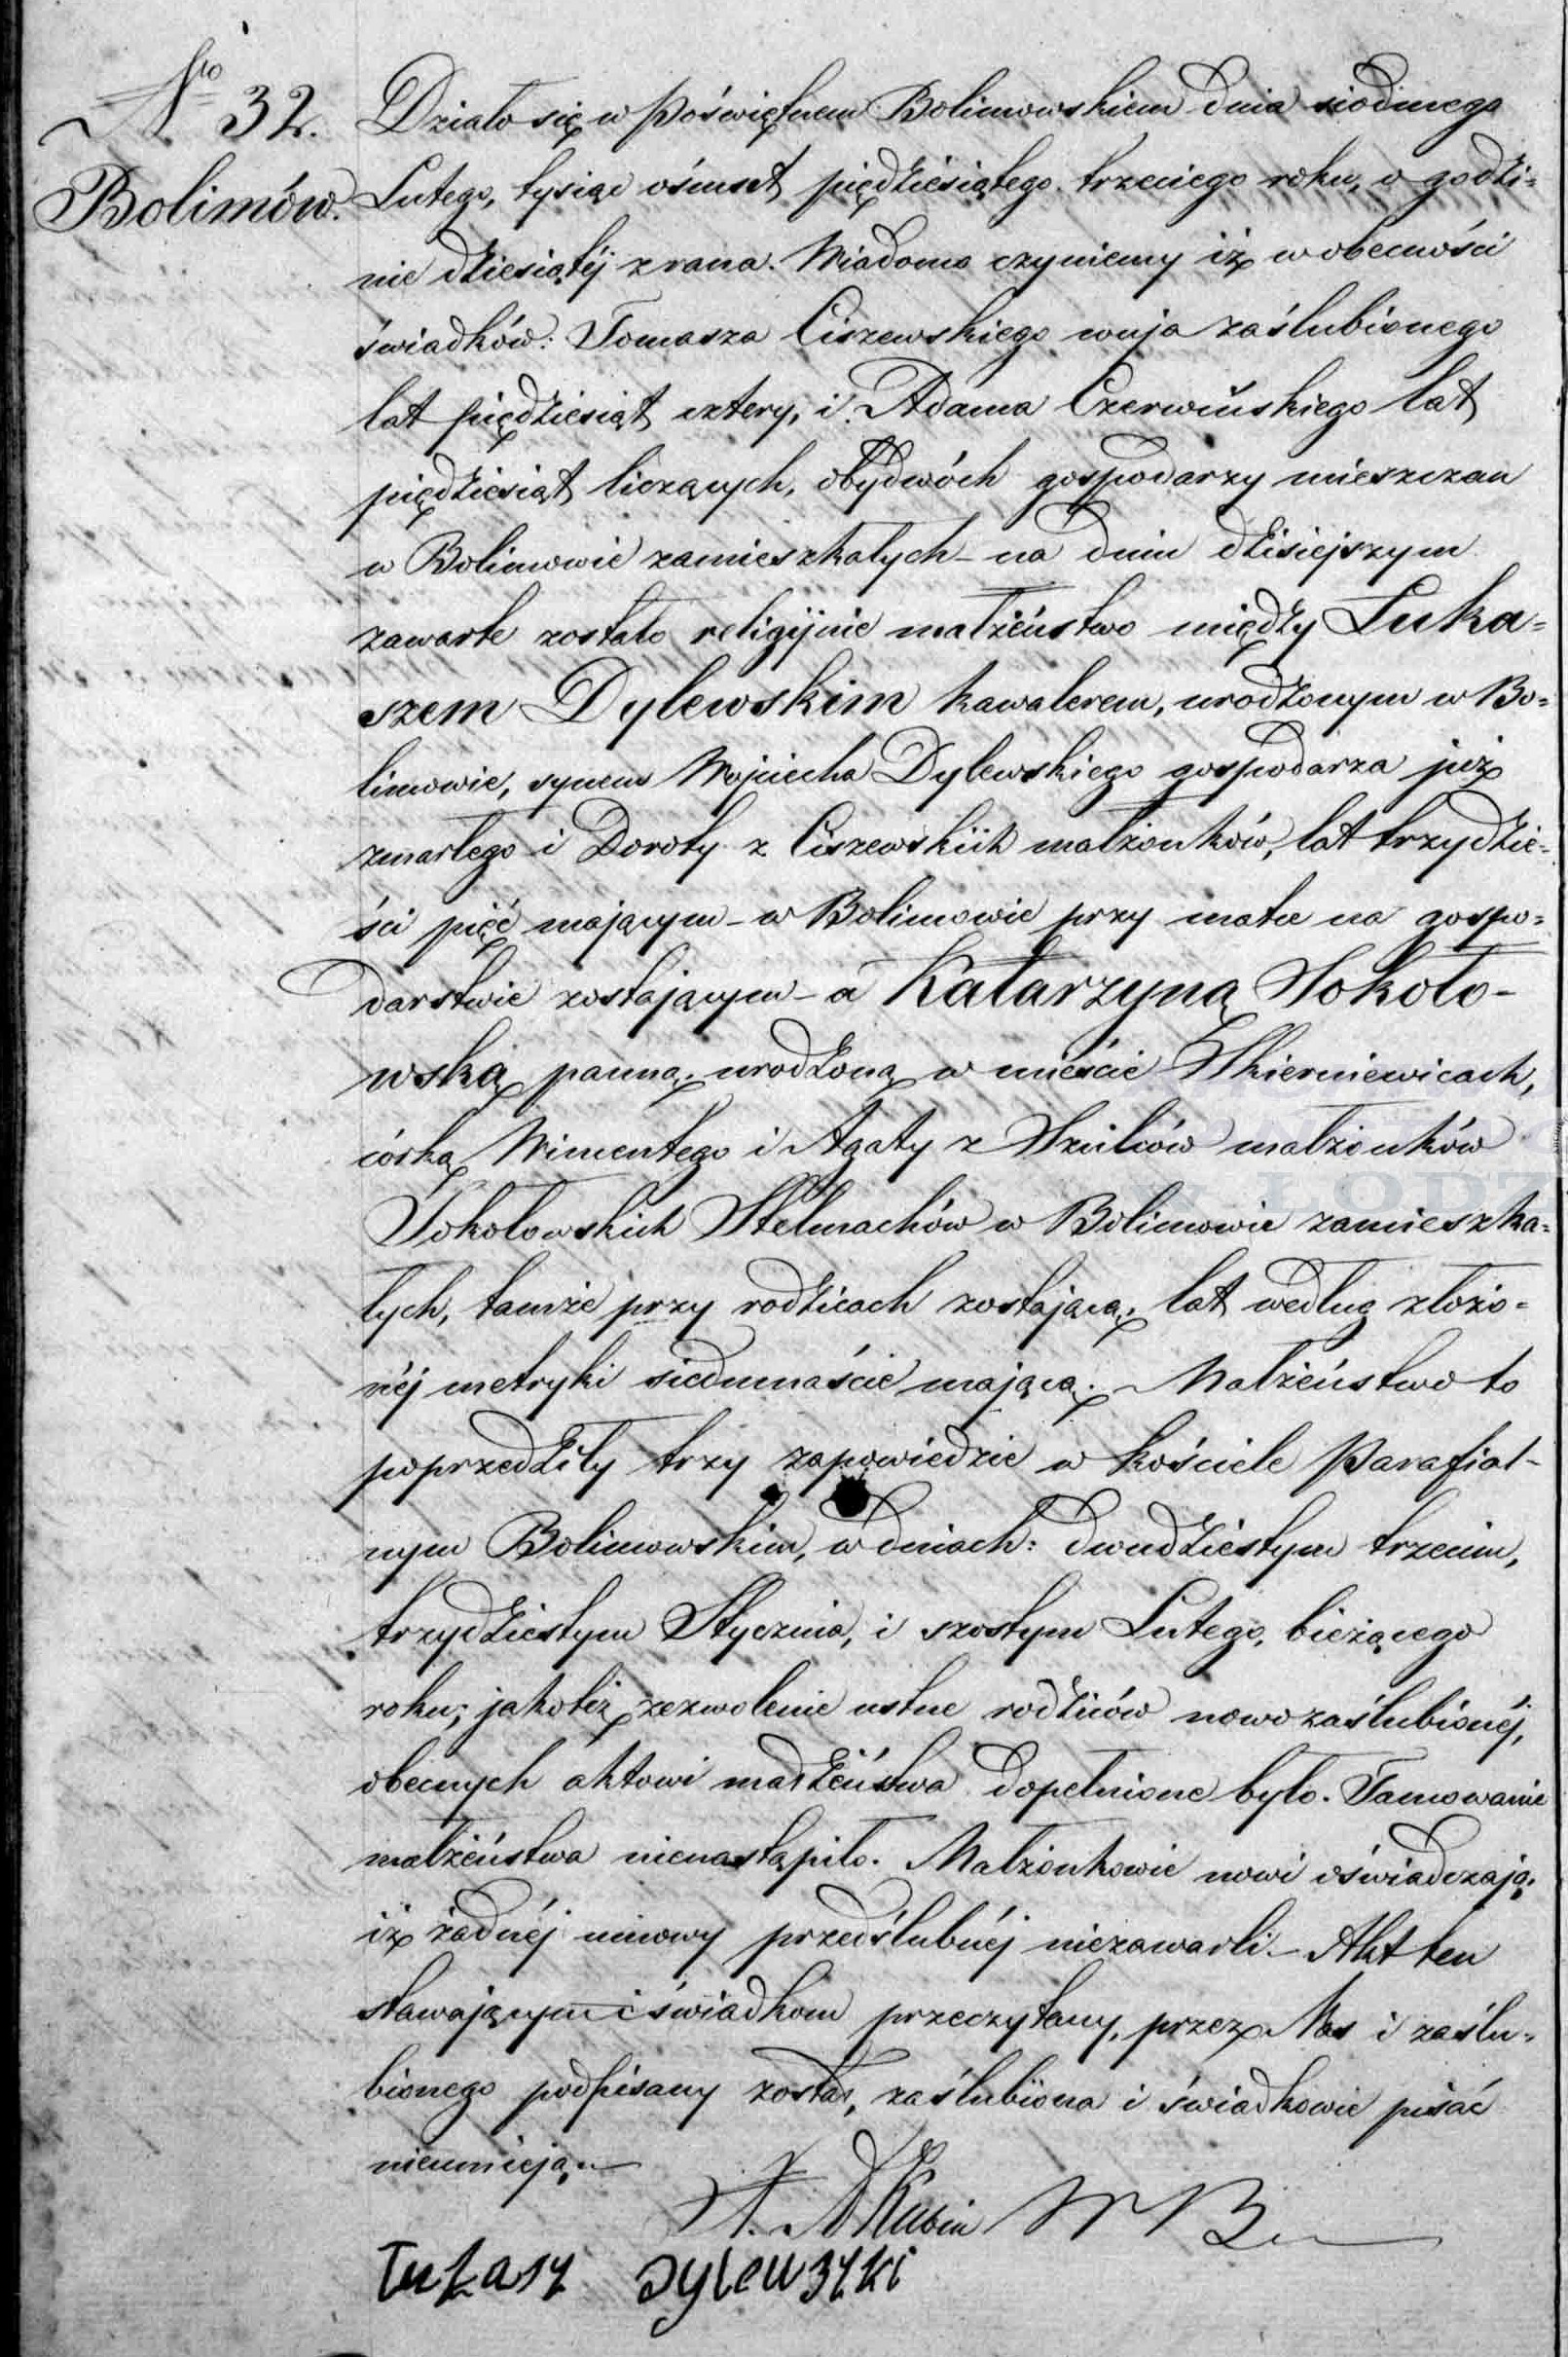 No 32.
Bolimów.
Działo się w Poświętnem Bolimowskiem dnia siodmego
Lutego, tysiąc ośmset piędziesiątego trzeciego roku, o godzi=
nie dziesiątéj z rana. Wiadomo czyniemy iż w obecności
świadków: Tomasza Ciszewskiego wuja zaślubionego
lat piędziesiąt cztery, i Adama Czerwińskiego lat
piędziesiąt liczących, obydwóch gospodarzy mieszczan
w Bolimowie zamieszkałych – na dniu dzisiejszym
zawarte zostało religijnie małżeństwo między Łuka=
szem Dylewskim kawalerem, urodzonym w Bo=
limowie, synem Wojciecha Dylewskiego gospodarza już
zmarłego i Doroty z Ciszewskich małżonków, lat trzydzie=
ści pięć mającym – w Bolimowie przy matce na gospo=
darstwie zostającym – a Katarzyną Sokoło-
wską panną, urodzoną w mieście Skierniewicach,
córką Wincentego i Agaty z Szulców małżonków
Sokołowskich Stelmachów w Bolimowie zamieszka=
łych, tamże przy rodzicach zostającą, lat według złożo=
néj metryki siedmnaście mającą. – Małżeństwo to
poprzedziły trzy zapowiedzie w kościele Parafial-
nym Bolimowskim, w dniach: dwudziestym trzecim,
trzydziestym Stycznia, i szostym Lutego, bieżącego
roku; jakoteż zezwolenie ustne rodziców nowozaślubionéj,
obecnych aktowi małżeństwa dopełnione było. Tamowanie
małżeństwa nienastąpiło. Małżonkowie nowi oświadczają,
iż żadnéj umowy przedślubnéj niezawarli. – Akt ten
stawającym i świadkom przeczytany, przez Nas i zaślu=
bionego podpisany został, zaślubiona i świadkowie pisać
nieumieją. –
Łukasz Dylewski